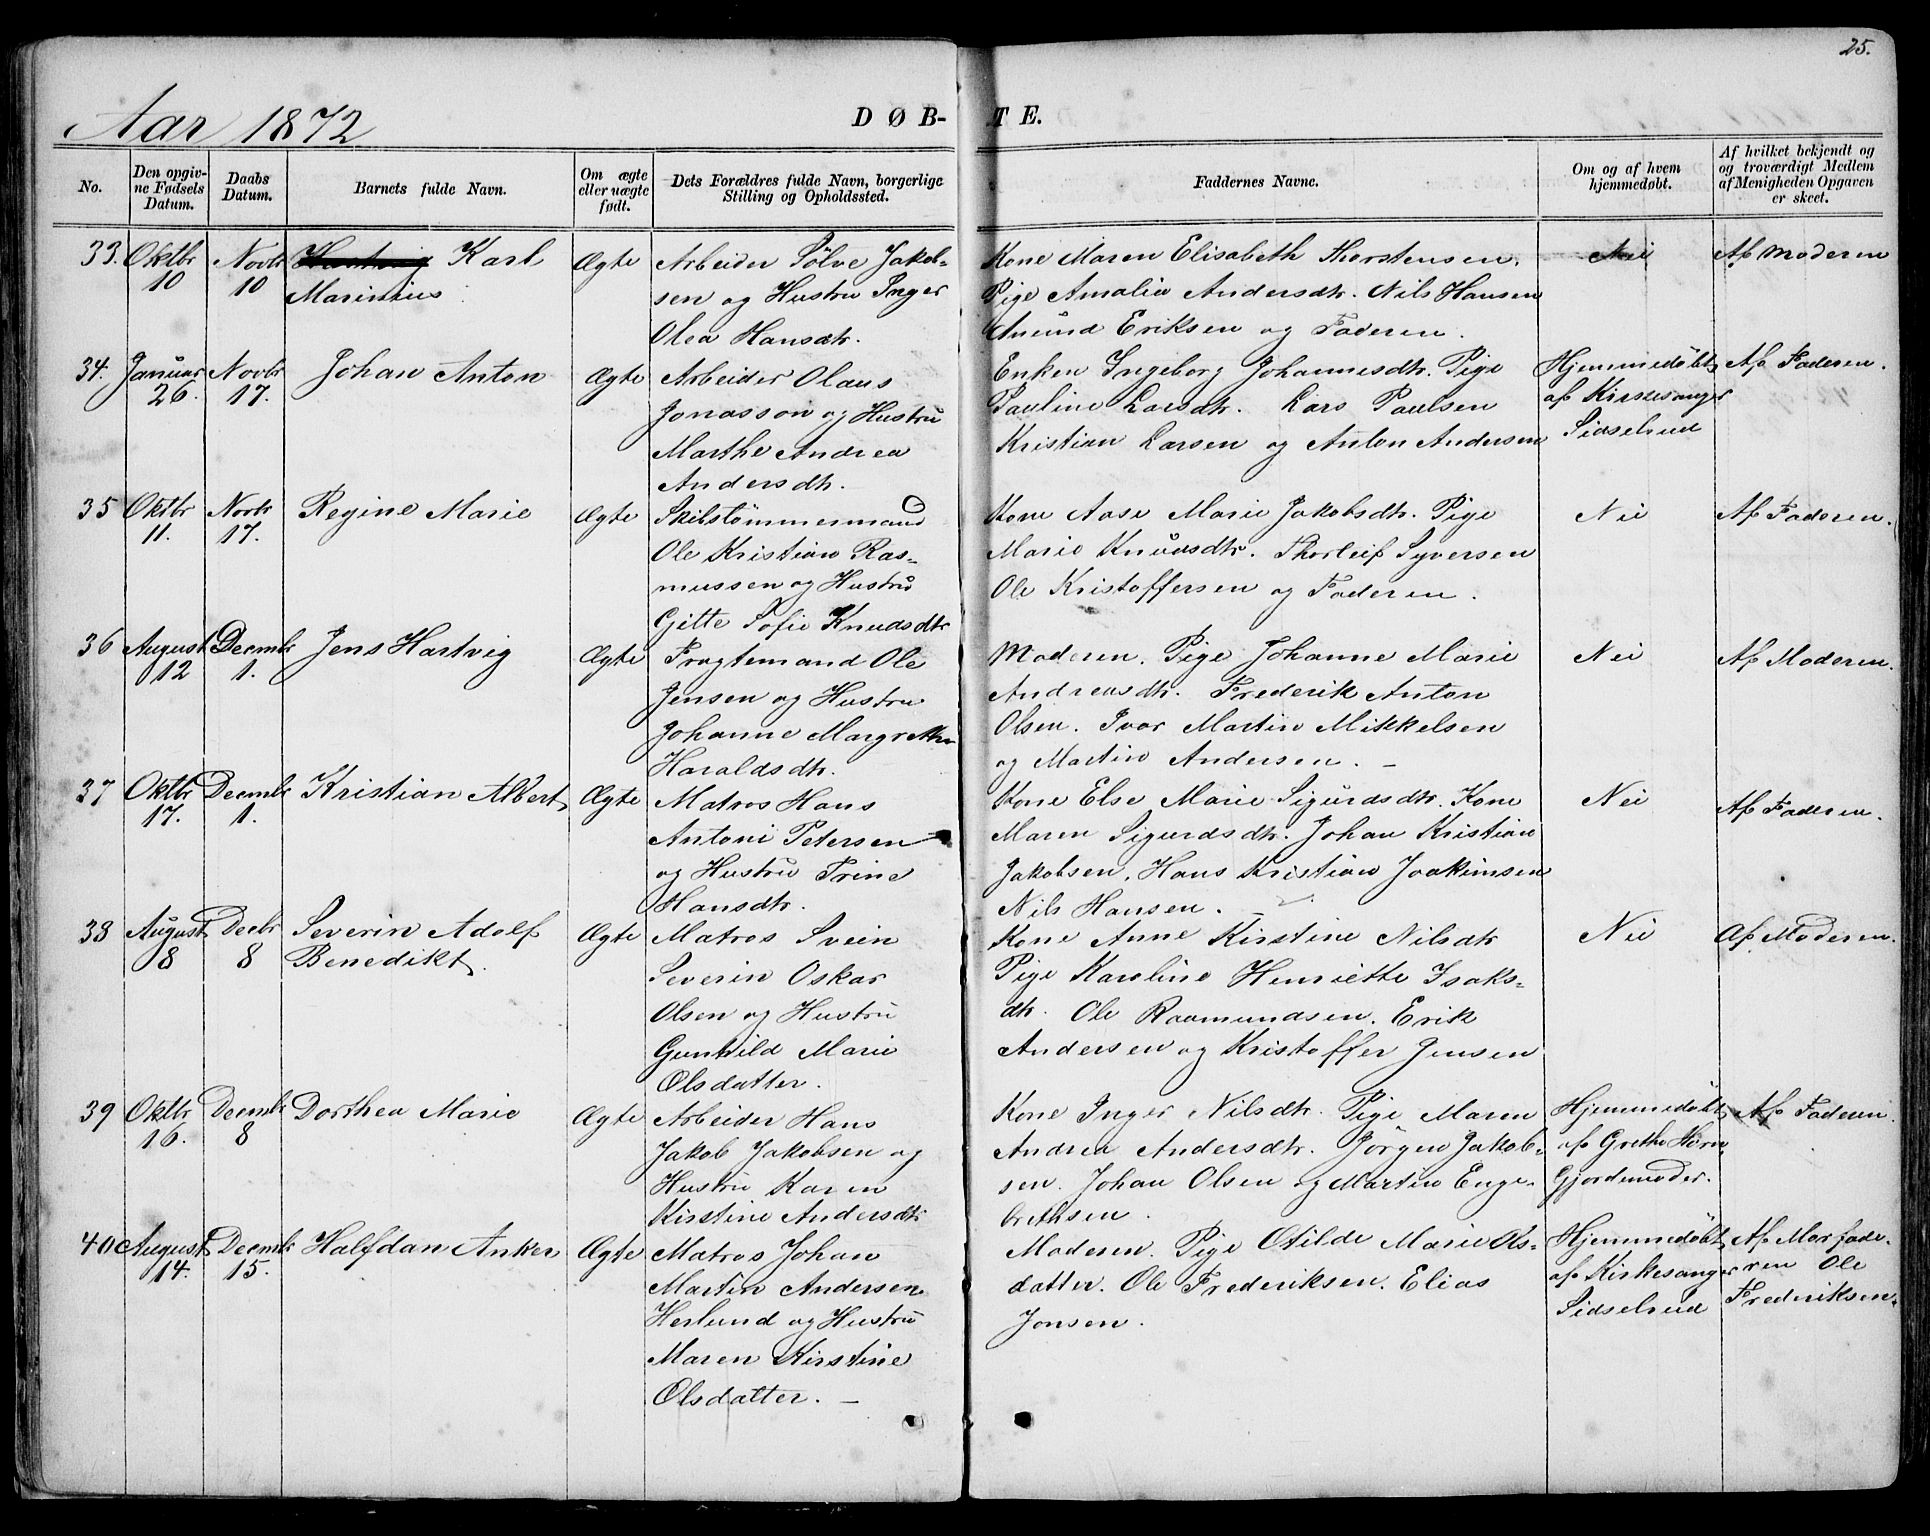 25.
Aar 1872
DØB-TE.
No.
Den opgiv-
ne Fødsels
Datum.
Daabs
Datum.
Barnets fulde Navn.
Om ægte
eller uægte
født.
Dets Forældres fulde Navn, borgerlige
Stilling og Opholdssted.
Faddernes Navne.
Om og af hvem
hjemmedøbt.
Af hvilket bekjendt og
og troværdigt Medlem
af Menigheden Opgaven
er skeet.
33. Oktbr
10
Novbr
10
Hartvig Karl
Marinius
Ægte
Arbeider Sölve Jakob-
sen og Hustru Inger
Olea Hansdtr.
Kone Maren Elisabeth Thorstensen.
Pige Amalia Andersdtr. Nils Hansen
Anund Eriksen og Faderen.
Nei
Af Moderen
34. Januar
26.
Novbr
17.
Johan Anton
Ægte
Arbeider Olaus
Jonasson og Hustru
Marthe Andrea
Andersdtr.
Enken Ingeborg Johannesdtr. Pige
Pauline Larsdtr. Lars Paulsen
Kristian Larsen og Anton Andersen
Hjemmedøbt
af Kirkesanger
Sidselrud
Af Faderen.
35 Oktbr
11.
Novbr
17.
Regine Marie
Ægte
Skibstömmermand
Ole Kristian Ras-
mussen og Hustru
Gitte Sofie Knudsdtr
Kone Aase Marie Jakobsdtr. Pige
Marie Knudsdtr. Thorleif Syversen
Ole Kristoffersen og Faderen.
Nei
Af Faderen.
36 August
12
Decmbr
1.
Jens Hartvig
Ægte
Fragtemand Ole
Jensen og Hustru
Johanne Margrethe
Haraldsdtr.
Moderen. Pige Johanne Marie
Andreasdtr. Frederik Anton
Olsen. Ivar Martin Mikkelsen
og Martin Andersen. –
Nei
Af Moderen.
37 Oktbr
17.
Decmbr
1.
Kristian Albert
Ægte
Matros Hans
Antoni Petersen
og Hustru Trine
Hansdtr.
Kone Else Marie Sigurdsdtr. Kone
Maren Sigurdsdtr. Johan Kristian
Jakobsen. Hans Kristian Joakimsen
Nils Hansen. –
Nei
Af Faderen.
38 August
8
Decbr
8
Severin Adolf
Benedikt.
Ægte
Matros Svein
Severin Oskar
Olsen og Hustru
Gunhild Marie
Olsdatter.
Kone Anne Kirstine Nilsdtr
Pige Karoline Henriette Isaks-
dtr. Ole Raamundsen. Erik
Andersen og Kristoffer Jensen
Nei
Af Moderen.
39 Oktbr
16.
Decmbr
8
Dorthea Marie
Ægte
Arbeider Hans
Jakob Jakobsen og
Hustru Karen
Kirstine Andersdtr
Kone Inger Nilsdtr. Pige Maren
Andrea Andersdtr. Jörgen Jakob-
sen. Johan Olsen og Martin Enge-
brethsen.
Hjemmedøbt
af Grethe
Gjordemoder.
Af Faderen.
40 August
14.
Decmbr
15.
Halfdan Anker
Ægte
Matros Johan
Martin Andersen
Herlund og Hustru
Maren Kirstine
Olsdatter. –
Moderen. Pige Otilde Marie Ols-
datter. Ole Frederiksen. Elias
Jonsen.
Hjemmedøbt
af Kirkesanger
Sidselrud
Af Morfade-
ren Ole
Frederiksen.